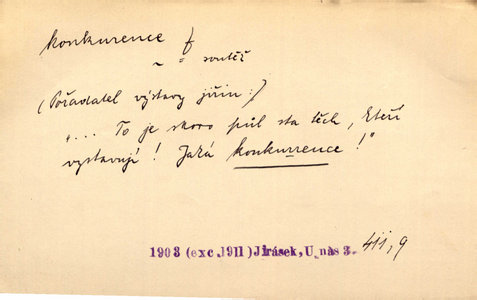 konkurence f
~ " soutěž
(Pořadatel výstavy jiřin:)
„... To je skoro půl sta těch, kteří
vystavují! Jaká konkurrence!"
1903 (exc.1911) Jirásek, U nás 3. 411,9